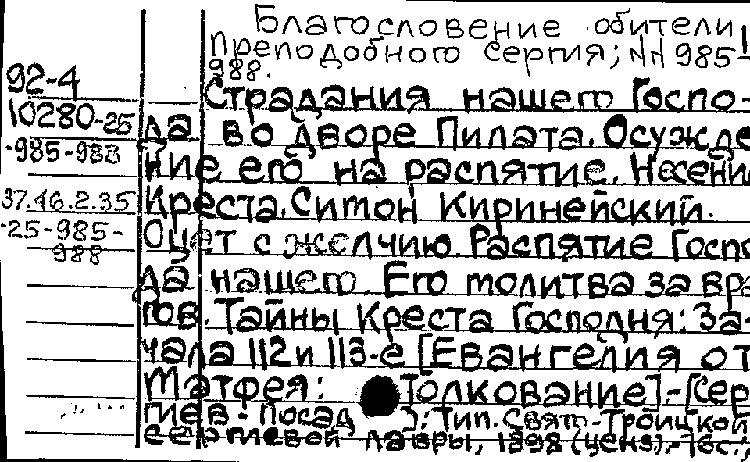 Благословение обители
Преподобного Сергия; №№ 985-
988.
92-4
Страдания нашего Госпо-
10280-25
да во дворе Пилата. Осужде
-985-988
ние его на распятие. Несени
37.46.2.35
Креста. Симон Киринейский.
-25-985-
988
Оцет с желчию. Распятие Госпо
да нашего. Его молитва за вра
гов. Тайны Креста Господня: За-
чала 112 и 113-е [Евангелия от
Матфея: Толкование].-[Сер
гиев-Посад]: Тип. Свято-Троицкой
Сергиевой лавры, 1898 (ценз).-16с.;